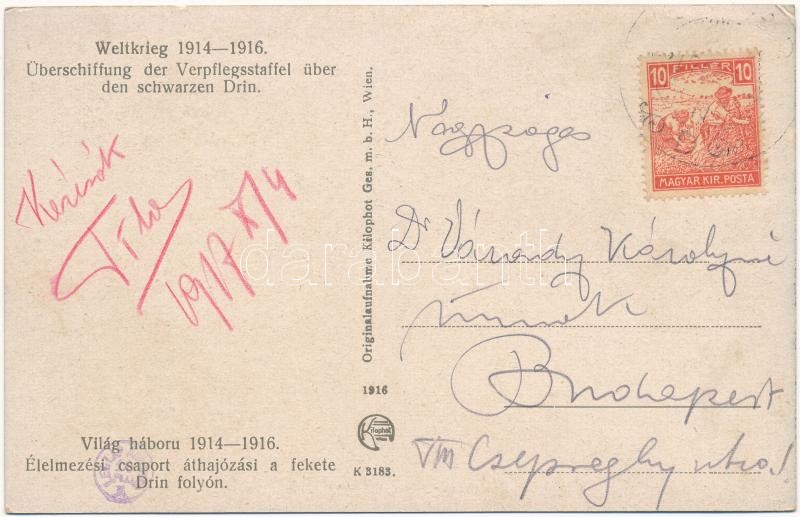 Weltkrieg 1914—1916.
Überschiffung der Verpflegsstaffel über
den schwarzen Drin.
1917 X/4
Világ háboru 1914—1916.
Élelmezési csaport áthajózási a fekete
Drin folyón.
Originalaufnahme Kilophot Ges. m. b. H., Wien.
1916
Kilophot
K 3183.
10 FILLÉR 10
MAGYAR KIR. POSTA
Nagyságos
Dr Várady Károlyné
Budapest
VIII Csepreghy utca
darabanth